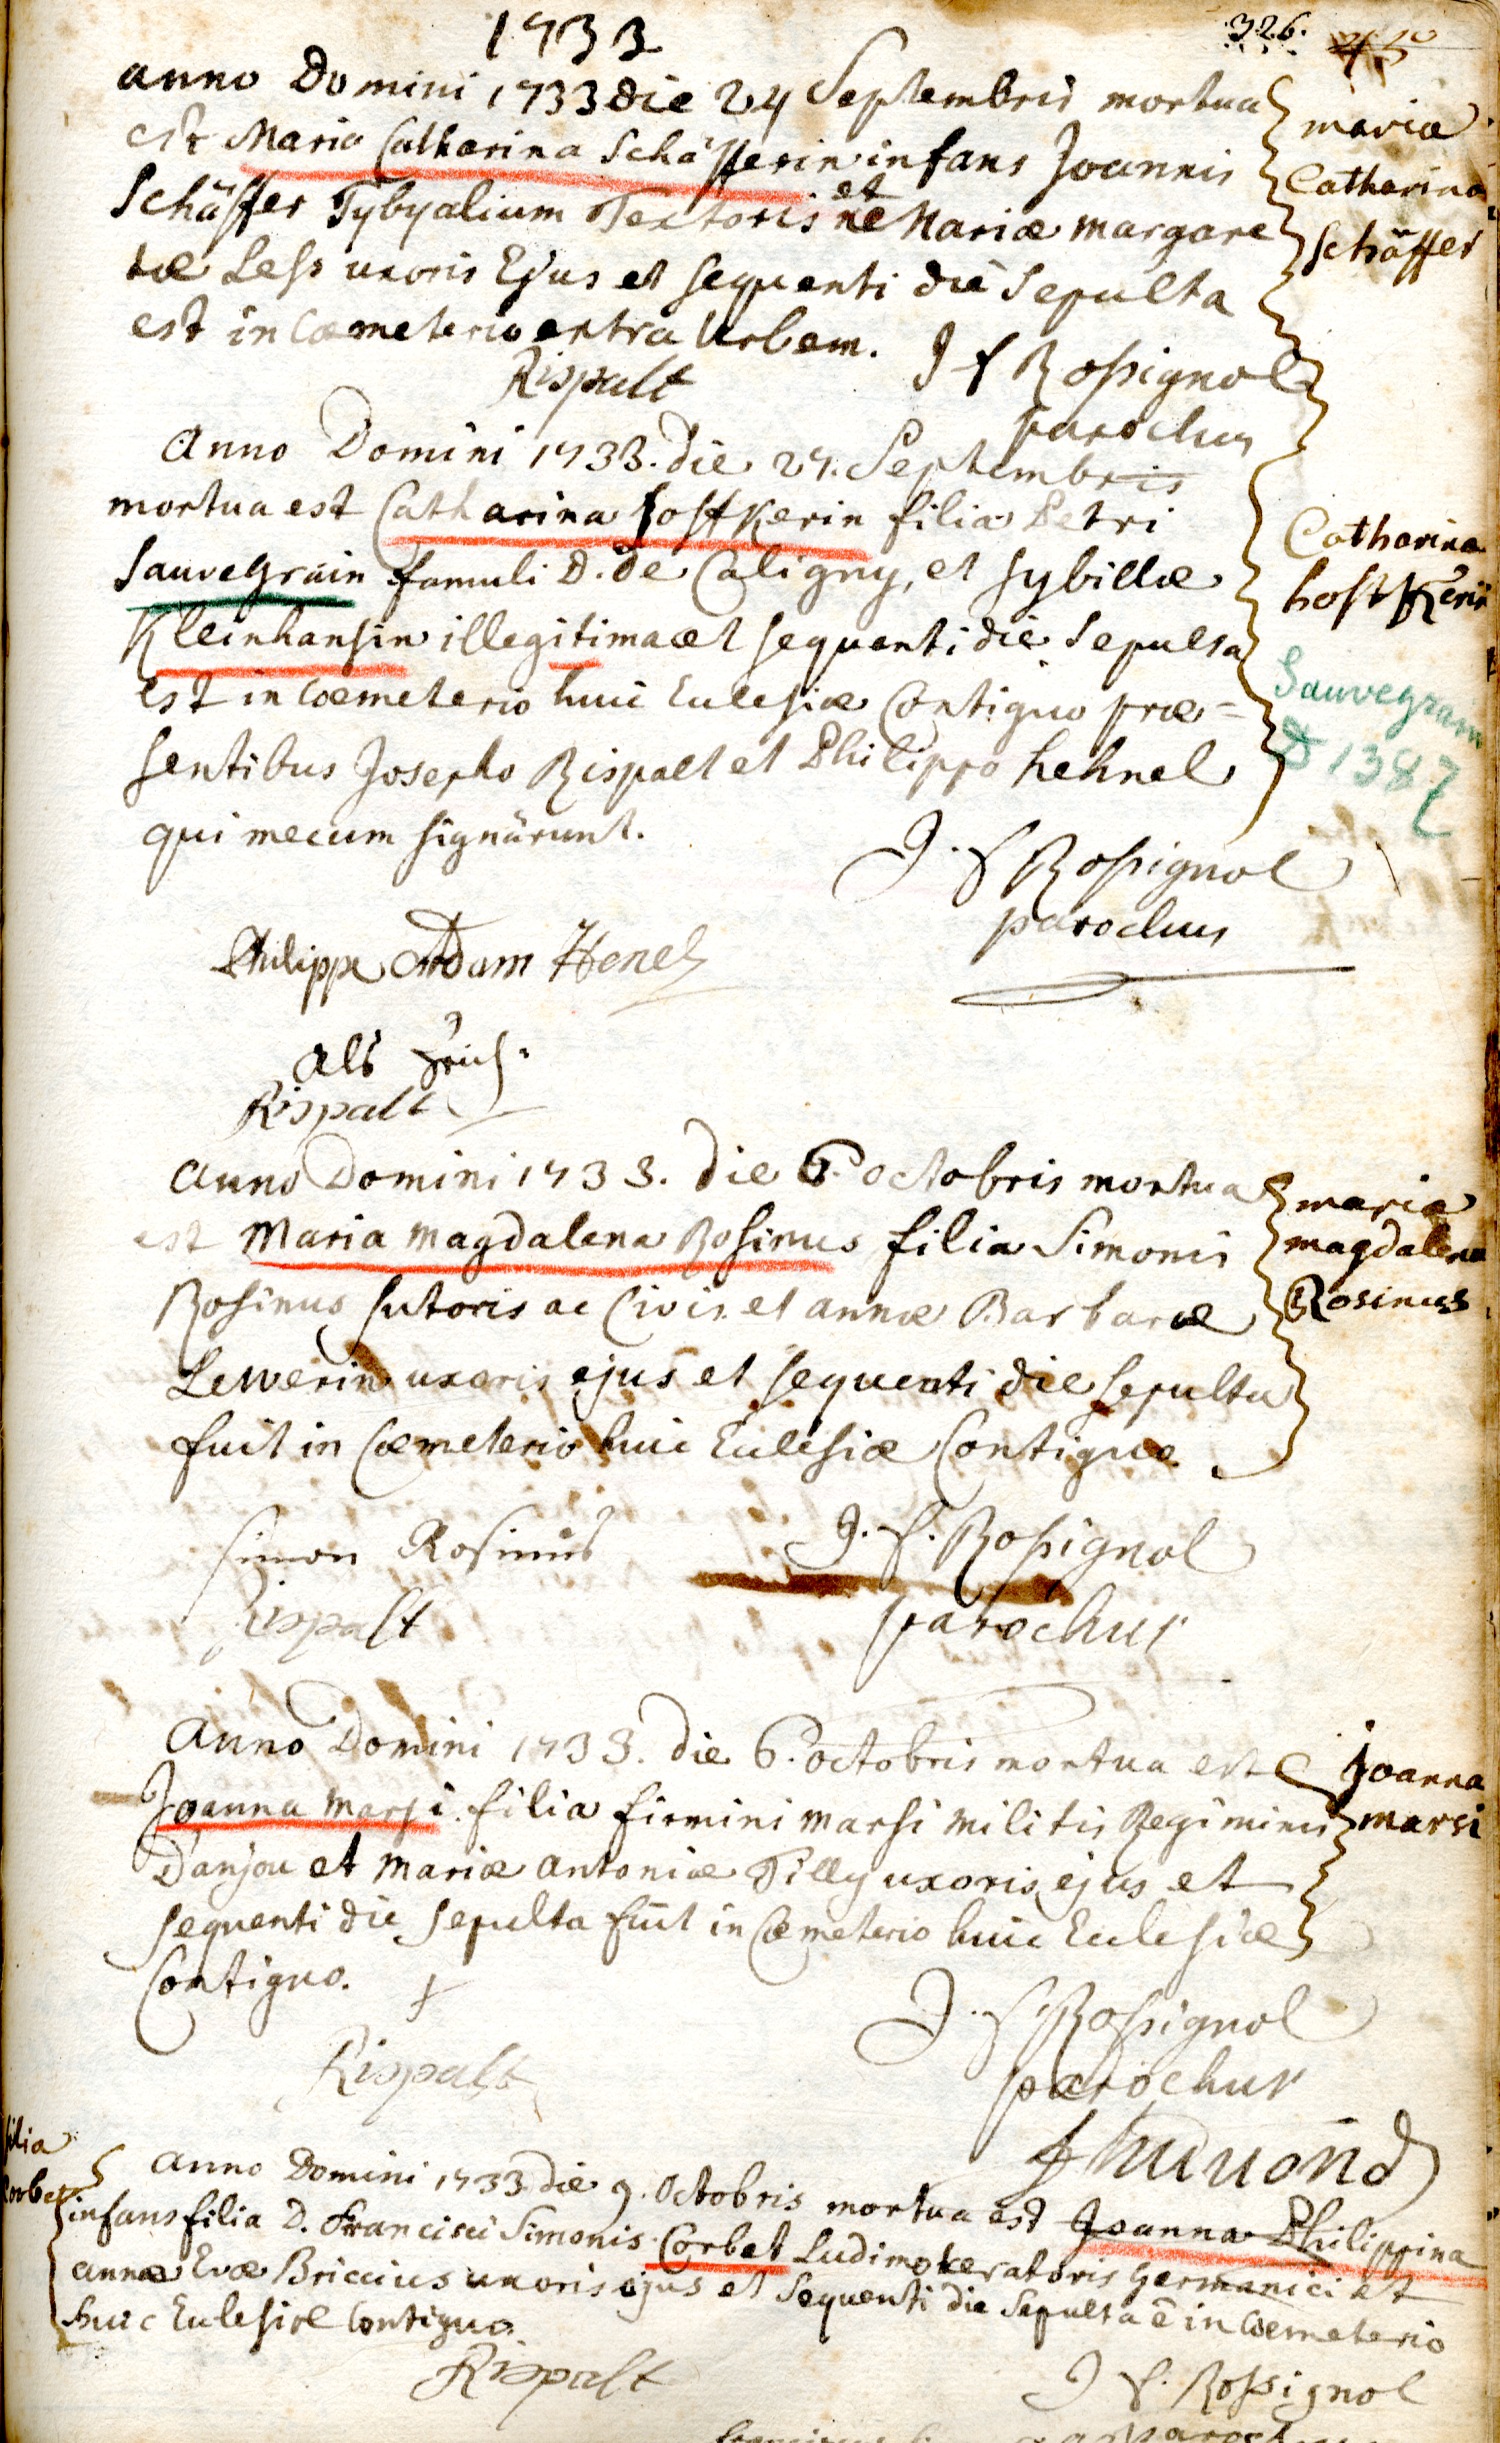 1733
326.
anno Domini 1733 die 24 Septembris mortua
est Maria Catharina Schäfferin infans Joannis
Schäffer Tybyalium Textoris et Mariæ margare
tæ Less uxoris Ejus et sequenti die Sepulta
est in Coemeterio extra Urbem.
maria
Catharina
schäffer
Rispalt
J f Rossignol
parochus
Anno Domini 1733. die 27. Septembris
mortua est Catharina hostkerin filia Petri
Sauvegrain famuli D. de Caligny, et sybillæ
Kleinhansin illegitima et sequenti die Sepulta
est in Coemeterio huic Ecclesiæ Contiguo præ=
sentibus Josepho Rispalt et Philippo hehnel
qui mecum signârunt.
Catharina
hostkerin
Sauvegrain
D 1387
J. f Rossignol
parochus
Philippe Adam Henel
Als
Rispalt
Anno Domini 1733. die 6. octobris mortua
est Maria Magdalena Rosinus filia Simonis
Rosinus sutoris ac Civis et annæ Barbaræ
Lewerin uxoris ejus et sequenti die sepulta
fuit in Coemeterio huic Ecclesiæ Contiguo
maria
magdalena
Rosinus
simon Rosinus
J. f. Rossignol
Rispalt
parochus
Anno Domini 1733. die 6. octobris mortua est
Joanna marsi filia firmini marsi militis Regiminis
D'anjou et mariæ antoniæ Tilly uxoris ejus et
sequenti die sepulta fuit in Coemeterio huic Ecclesiæ
Contiguo.
joanna
marsi
J. f Rossignol
Rispalt
parochus
anno Domini 1733 die 9. Octobris mortua est Joanna Philippina
infans filia D. Francisci Simonis Corbet Ludimoderatoris Germanici et
annæ Evæ Briccius uxoris ejus et sequenti die Sepulta ē in Coemeterio
huic Ecclesiæ Contiguo
Rispalt
J f. Rossignol